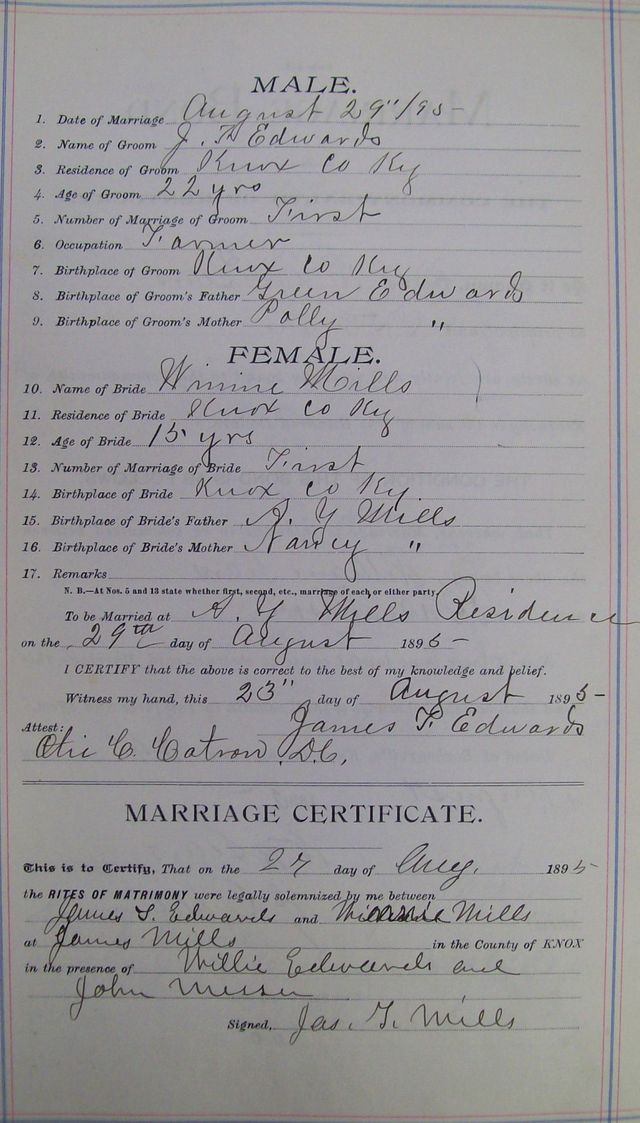 MALE.
1. Date of Marriage August 29"/95-
2. Name of Groom J. F. Edwards
3. Residence of Groom Knox Co Ky
4. Age of Groom 22 yrs
5. Number of Marriage of Groom First
6. Occupation Farmer
7. Birthplace of Groom Knox Co Ky
8. Birthplace of Groom's Father Green Edwards
9. Birthplace of Groom's Mother Polly "
FEMALE.
10. Name of Bride Winnie Mills
11. Residence of Bride Knox Co Ky
12. Age of Bride 15 yrs
13. Number of Marriage of Bride First
14. Birthplace of Bride Knox Co Ky
15. Birthplace of Bride's Father A. Y Mills
16. Birthplace of Bride's Mother Nancy "
17. Remarks
N. B.—At Nos. 5 and 13 state whether first, second, etc., marriage of each or either party
To be Married at A. Y Mills Residence
on the 29th day of August 1895-
I CERTIFY that the above is correct to the best of my knowledge and belief.
Witness my hand, this 23" day of August 1895-
James F. Edwards
Attest:
C. Catron D.C,
MARRIAGE CERTIFICATE.
This is to Certify, That on the day of Aug. 1895-
the RITES OF MATRIMONY were legally solemnized by me between
James Edwards and Mills
at James Mills in the County of KNOX
in the presence of Willie Edwards and
John
Signed, Jas. Mills